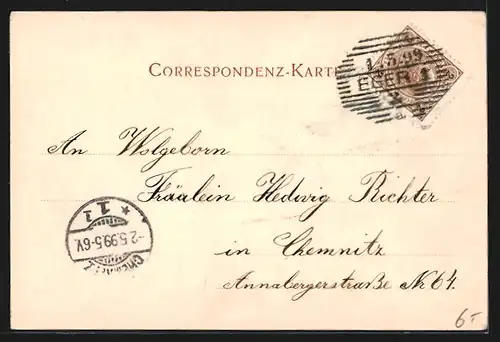 CORRESPONDENZ-KARTE
1.5.99
EGER 1
An Wolgeborn
Fräulein Hedwig Richter
in Chemnitz
Annabergerstraße Nr 64.
* 11
-2.5.99.5-6V.
Chemnitz
6-